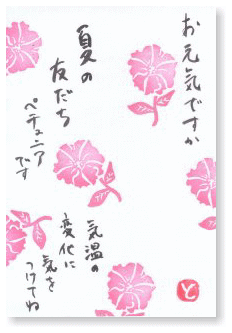 お元気ですか
夏の
友だち
ペチュニア
です
気温の
変化に
気を
つけてね
と